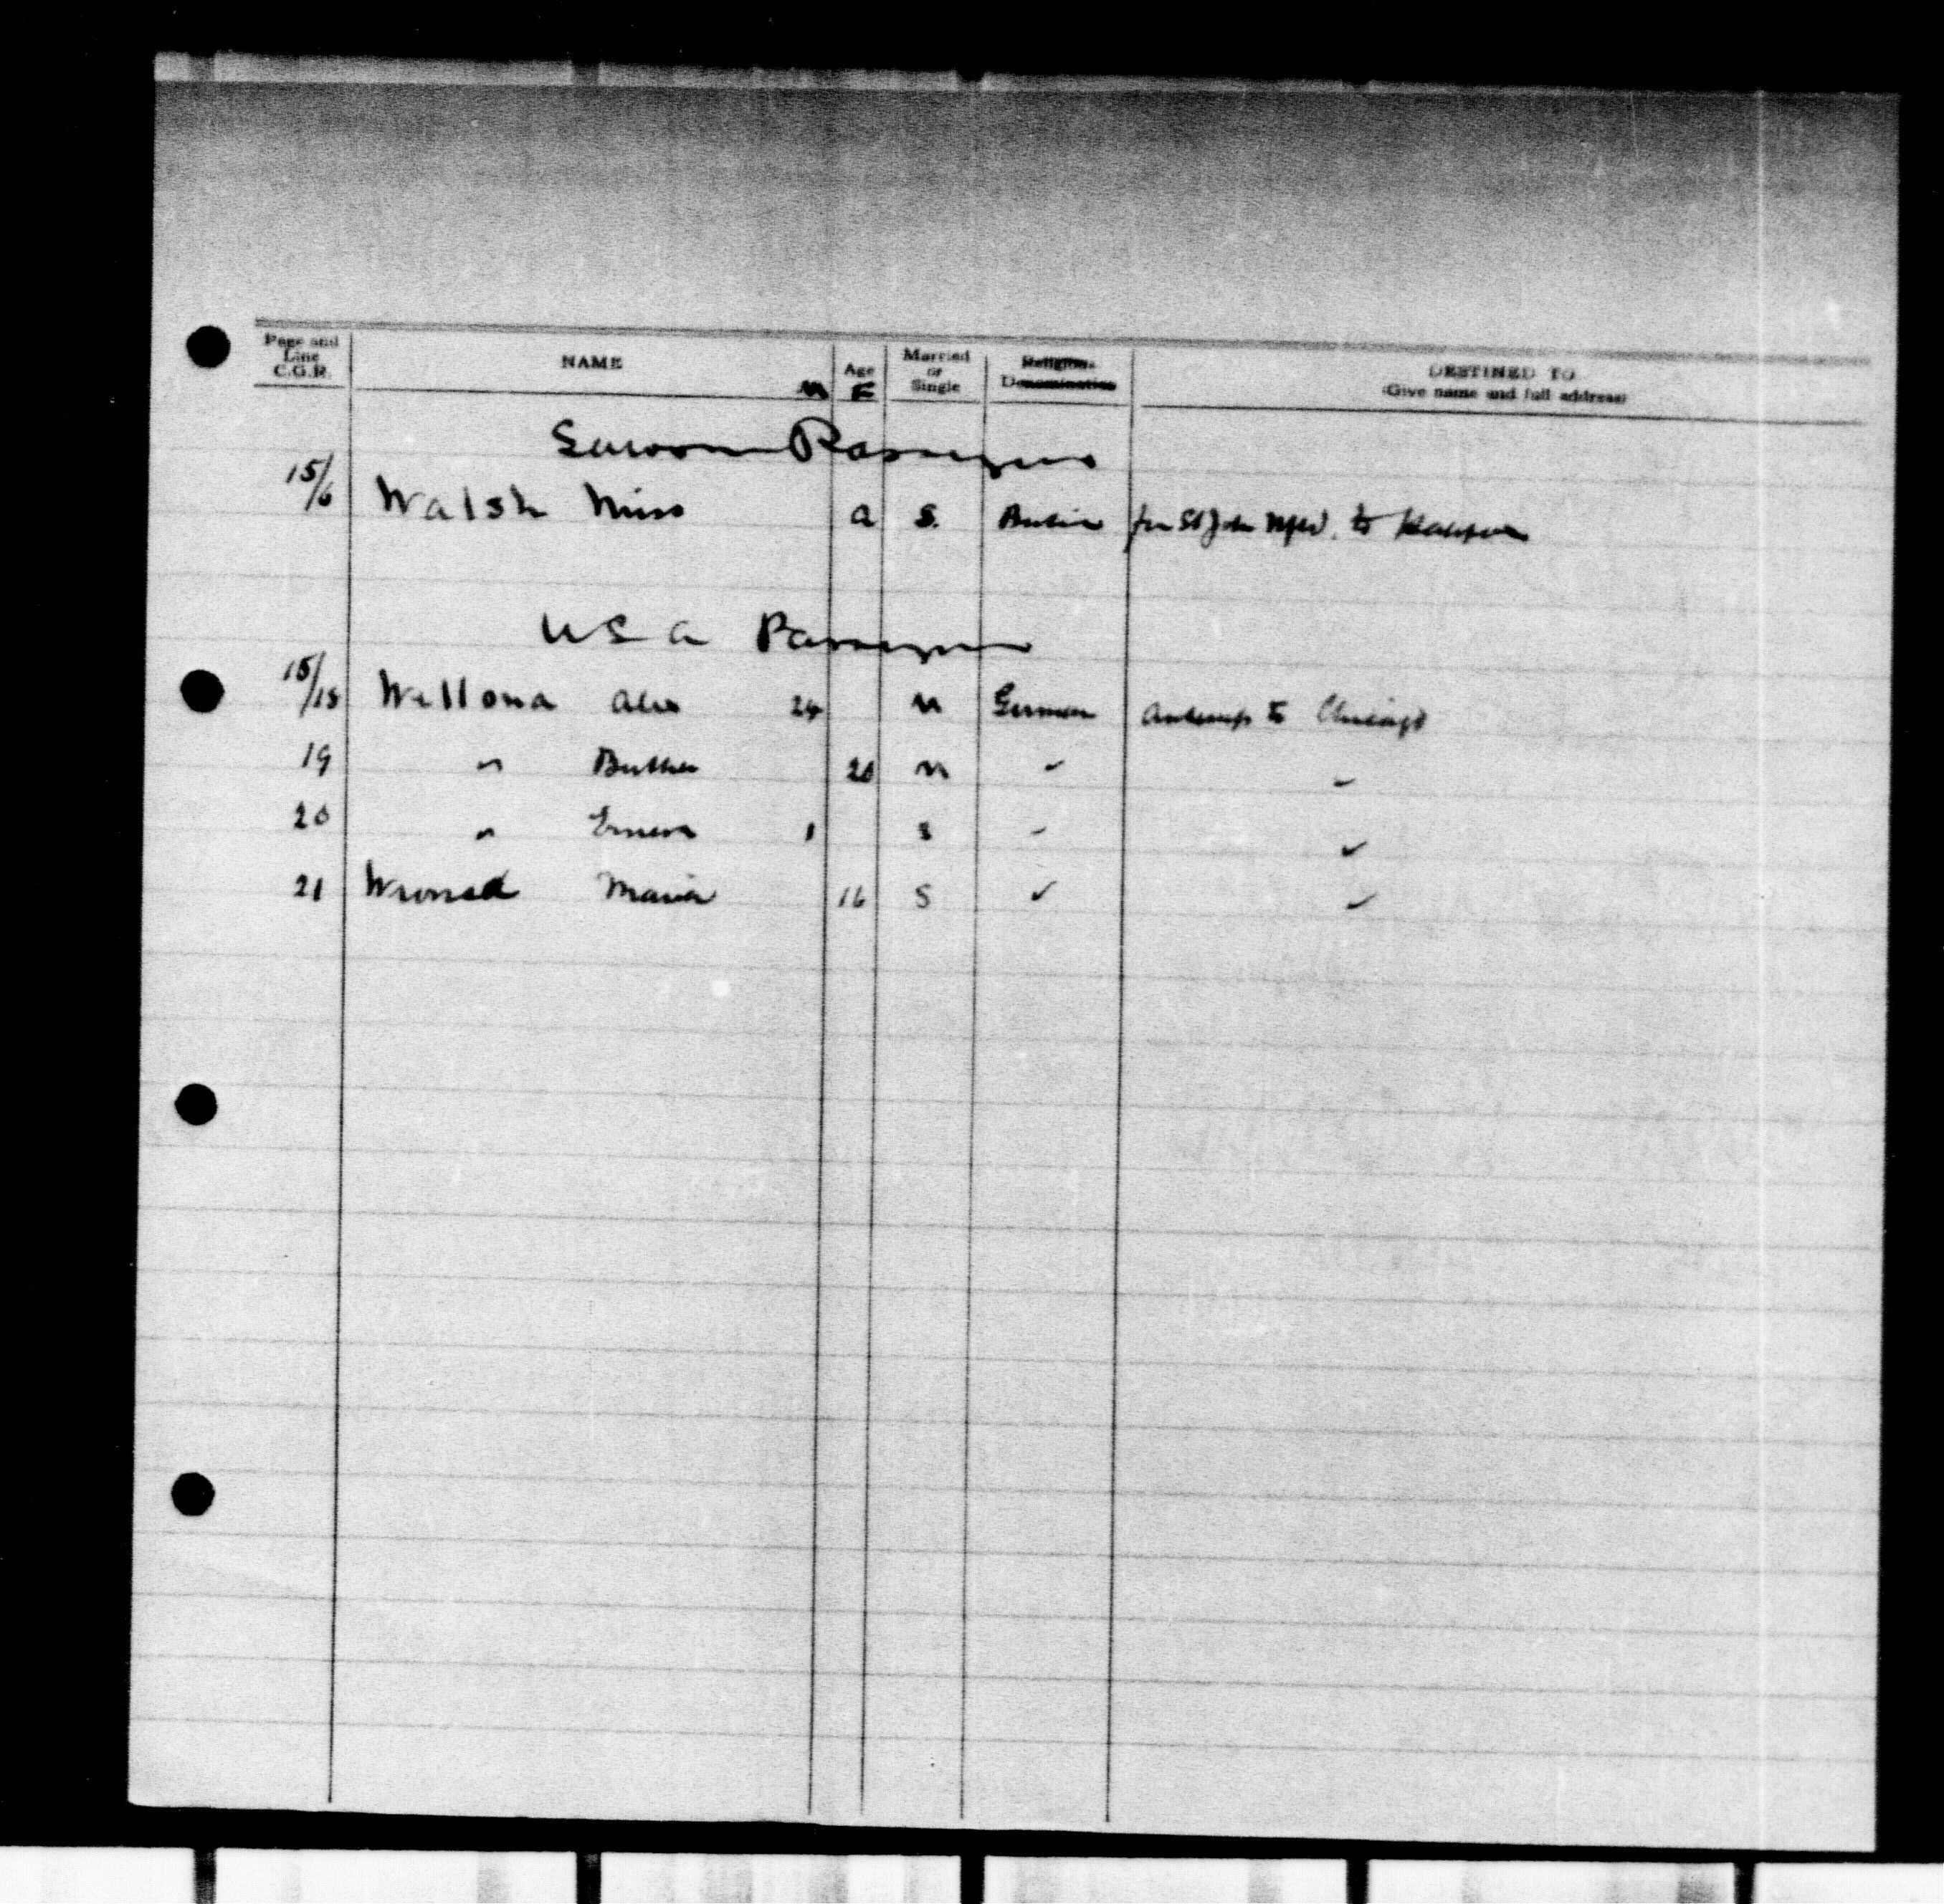 Page and Line C.G.R. NAME M Age F Married or Single Religious Denomination DESTINED TO (Give name and full address)
Saloon Passengers
15/6 Walsh Miss a S. British fm St John Nfld. to Halifax
USA Passengers
15/18 Wellona Alex 24 M German Antwerp to Chicago
19 " 20 M " "
20 " 1 S " "
21 Maria 16 S " "